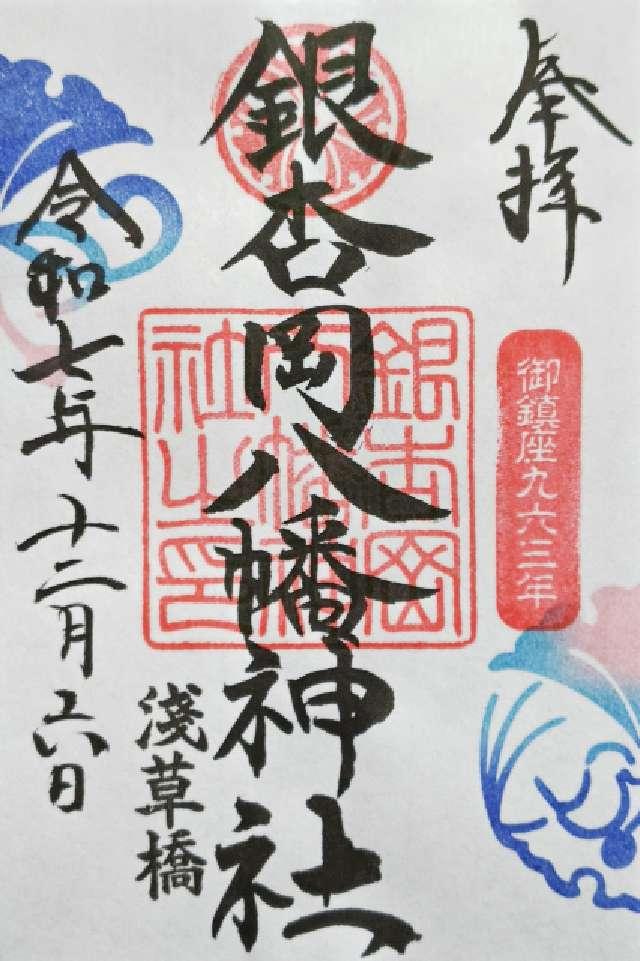 奉拝
御鎮座九六三年
銀杏岡八幡神社
銀杏岡八幡神社之印
淺草橋
令和七年十二月六日